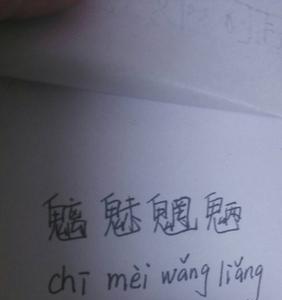 魑魅魍魉
chī mèi wǎng liǎng